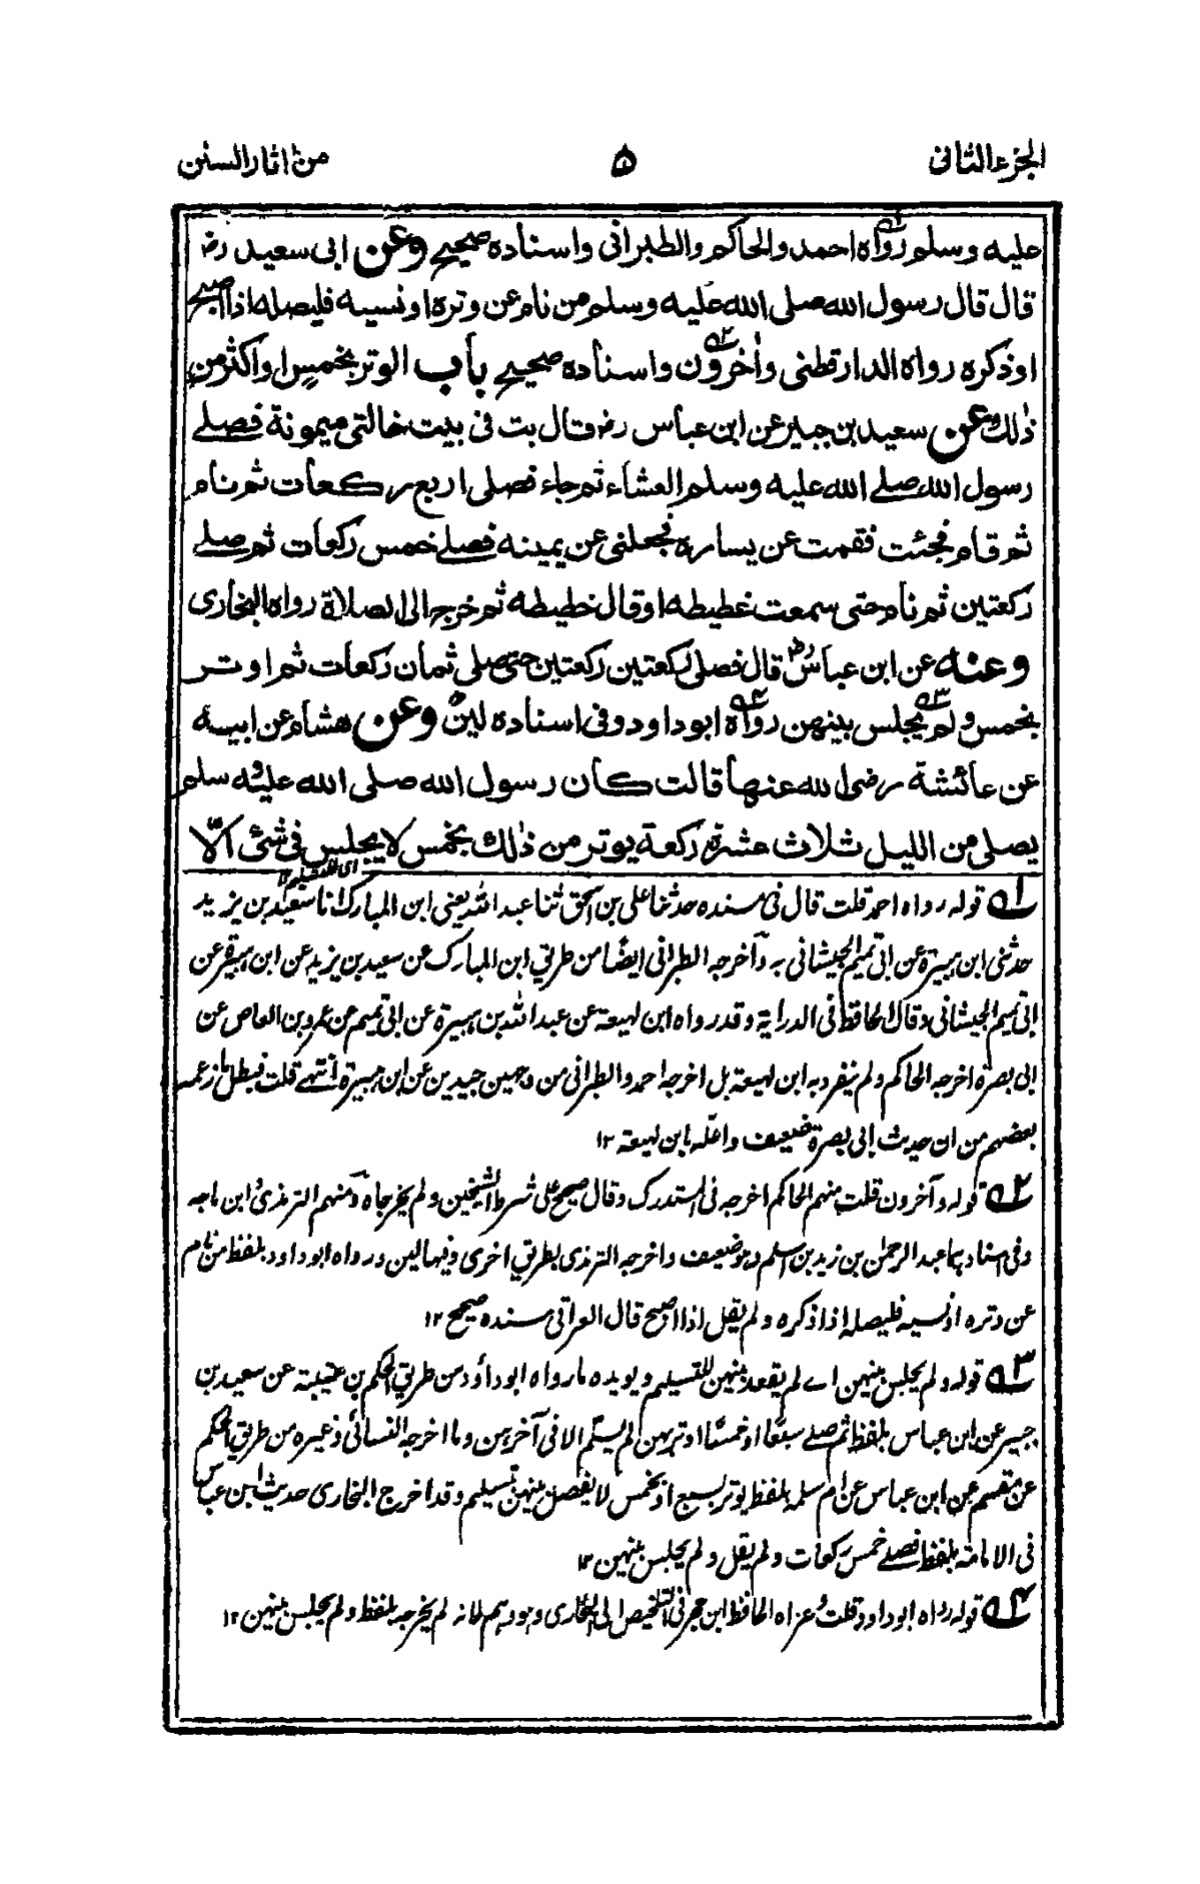 الجزء الثانى
۵
من اثار السنن
عليه وسلم رواه احمد والحاكم والطبرانى واسناده صحيح وعن ابى سعيد رض
قال قال رسول الله صلى الله عليه وسلم من نام عن وتره او نسيه فليصله اذا اصبح
او ذكره رواه الدارقطنى واٰخرون واسناده صحيح باب الوتر بخمس او اكثر من
ذٰلك وعن سعيد بن جبير عن ابن عباس رض قال بت فى بيت خالتى ميمونة فصلے
رسول الله صلے الله عليه وسلم العشاء ثم جاء فصلى اربع ركعات ثم نام
ثم قام فجئت فقمت عن يساره فجعلنى عن يمينه فصلے خمس ركعات ثم صلے
ركعتين ثم نام حتى سمعت غطيطه او قال خطيطه ثم خرج الى الصلاة رواه البخارى
وعنه عن ابن عباس رض قال فصلى ركعتين ركعتين حتى صلى ثمان ركعات ثم اوتر
بخمس ولم يجلس بينهن رواه ابوداود وفى اسناده لين وعن هشام عن ابيه
عن عائشة رضى الله عنها قالت كان رسول الله صلى الله عليه وسلم
يصلى من الليل ثلاث عشرة ركعة يوتر من ذٰلك بخمس لا يجلس فى شئ الّا
۱ قوله رواه احمد قلت قال فى مسنده حدثنا على بن اسحٰق ثنا عبد الله يعنى ابن المبارك انا سعيد بن يزيد
حدثنى ابن هبيرة عن ابى تميم الجيشانى به وآخرجه الطبرانى ايضًا من طريق ابن المبارك عن سعيد بن يزيد عن ابن هبيرة عن
ابى تميم الجيشانى وقال الحافظ فى الدراية وقد رواه ابن لهيعة عن عبد الله بن هبيرة عن ابى تميم عن عمرو بن العاص عن
ابى بصرة اخرجه الحاكم ولم ينفرد به ابن لهيعة بل اخرجه احمد والطبرانى من وجهين جيدين عن ابن هبيرة انتهے قلت فبطل ما زعمه
بعضهم من ان حديث ابى بصرة ضعيف واعله بابن لهيعة ۱۲
۲ قوله وآخرون قلت منهم الحاكم اخرجه فى المستدرك وقال صحيح على شرط الشيخين ولم يخرجاه ومنهم الترمذى وابن ماجه
وفى اسنادهما عبد الرحمٰن بن زيد بن اسلم وهو ضعيف واخرجه الترمذى بطريق اخرى وفيها لين ورواه ابوداود بلفظ من نام
عن وتره او نسيه فليصله اذا ذكره ولم يقل اذا اصبح قال العراقى سنده صحيح ۱۲
۳ قوله ولم يجلس بينهن اے لم يقعد بينهن للتسليم ويويده ما رواه ابوداؤد من طريق الحكم بن عتيبة عن سعيد بن
جبير عن ابن عباس بلفظ ثم صلے سبعًا او خمسًا اوتر بهن لم يسلم الا فى آخرهن وما اخرجه النسائى وغيره من طريق الحكم
عن مقسم عن ابن عباس عن ام سلمه بلفظ يوتر بسبع او بخمس لا يفصل بينهن بتسليم وقد اخرج البخارى حديث ابن عباس
فى الامامة بلفظ فصلے خمس ركعات ولم يقل ولم يجلس بينهن ۱۲
۴ قوله رواه ابوداود قلت وعزاه الحافظ ابن حجر فى التلخيص الى البخارى وهو وهم لانه لم يخرجه بلفظ ولم يجلس بينهن ۱۲